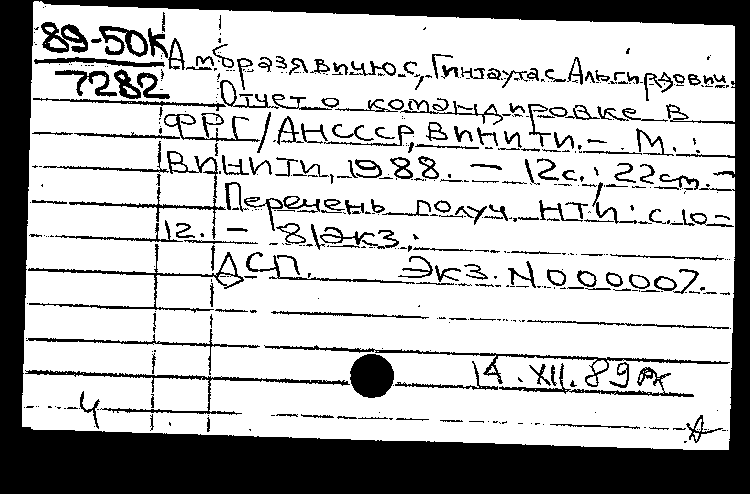 89-50К
7282
Амбразявичюс, Гинтаутас Альгирдович.
Отчет о командировке в
ФРГ/АНСССР, ВИНИТИ. – М. :
ВИНИТИ, 1988. – 12с.; 22см. –
Перечень получ. НТИ: с. 10–
12. – 81экз.;
ДСП. Экз. N000007.
14.XII.89
Ч